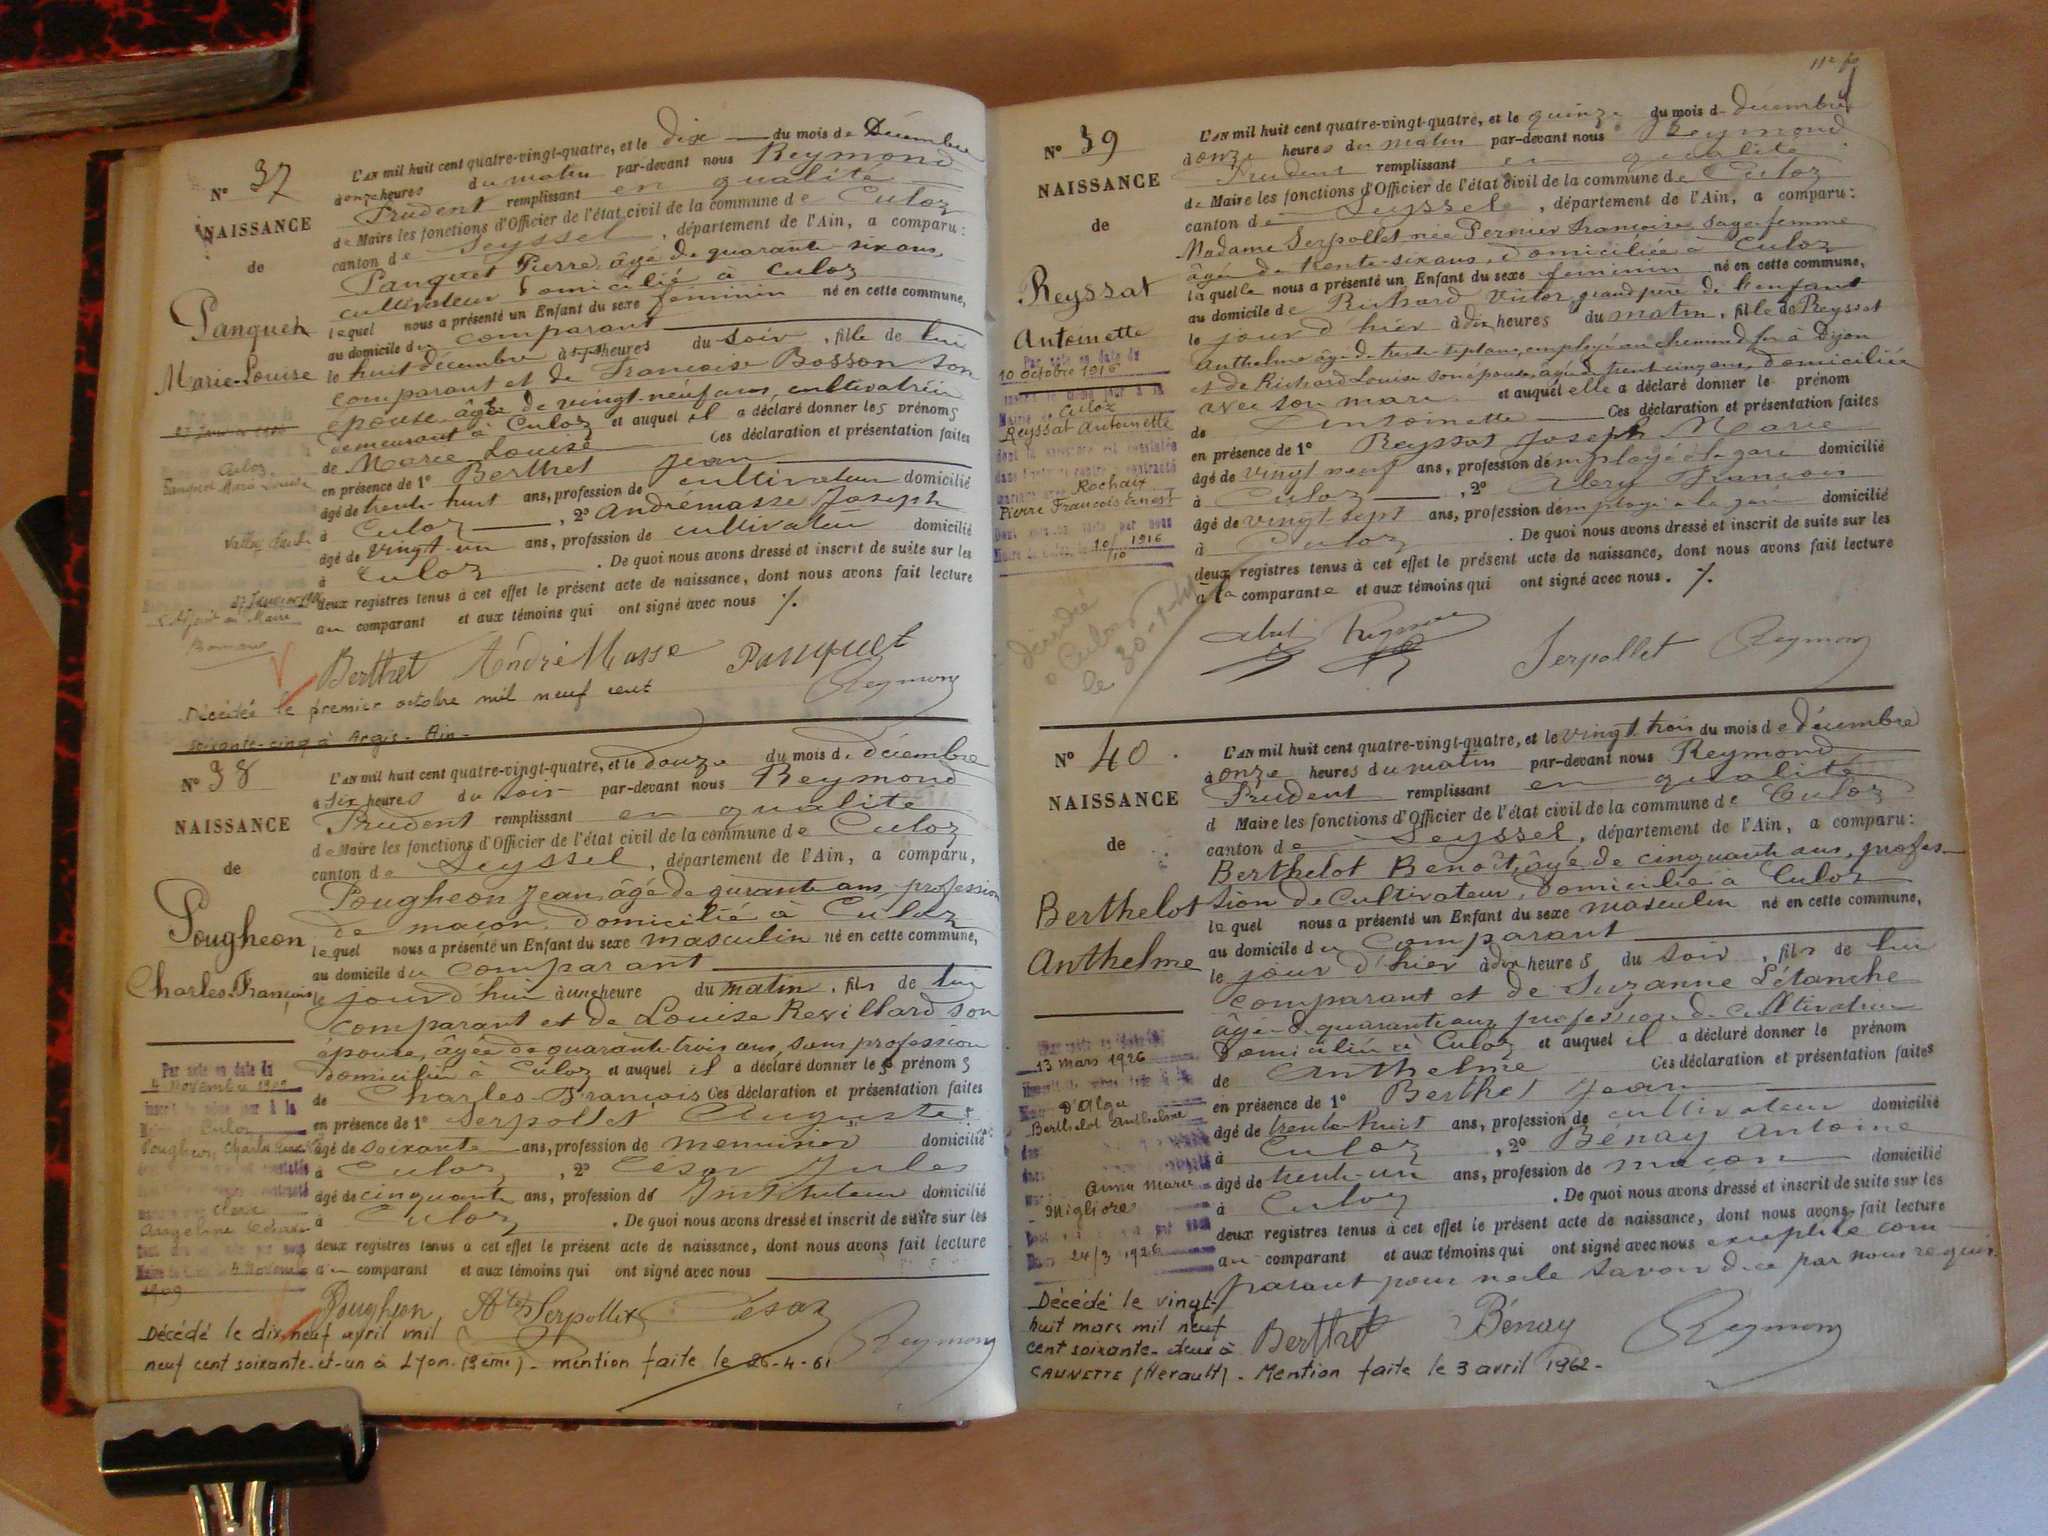 N° 37
NAISSANCE
de
Panquet
Marie-Louise
L'AN mil huit cent quatre-vingt-quatre, et le dix du mois de Décembre
à onze heures du matin par-devant nous Reymond
Prudent remplissant en qualité
de Maire les fonctions d'Officier de l'état civil de la commune de Culoz
canton de Seyssel, département de l'Ain, a comparu:
Panquet Pierre, âgé de quarante six ans,
cultivateur domicilié à Culoz
lequel nous a présenté un Enfant du sexe féminin né en cette commune,
au domicile du comparant
le huit décembre à sept heures du soir, fille de lui
comparant et de Françoise Bosson son
épouse âgée de vingt-neuf ans, cultivatrice
demeurant à Culoz et auquel il a déclaré donner les prénoms
de Marie Louise Ces déclaration et présentation faites
en présence de 1° Berthet Jean
âgé de trente-huit ans, profession de cultivateur domicilié
à Culoz, 2° Andrémasse Joseph
âgé de vingt-un ans, profession de cultivateur domicilié
à Culoz. De quoi nous avons dressé et inscrit de suite sur les
deux registres tenus à cet effet le présent acte de naissance, dont nous avons fait lecture
au comparant et aux témoins qui ont signé avec nous ./.
Culoz
Panquet Marie Louise
27 Janvier
L'Adjoint au Maire
Berthet André Masse Panquet
Reymond
Décédée le premier octobre mil neuf cent
soixante-cinq à Argis - Ain -
N° 38
NAISSANCE
de
Pougheon
Charles-François
L'AN mil huit cent quatre-vingt-quatre, et le douze du mois de décembre
à six heures du soir par-devant nous Reymond
Prudent remplissant en qualité
de Maire les fonctions d'Officier de l'état civil de la commune de Culoz
canton de Seyssel, département de l'Ain, a comparu,
Pougheon Jean, âgé de qurante ans, profession
de maçon, domicilié à Culoz
lequel nous a présenté un Enfant du sexe masculin né en cette commune,
au domicile du comparant
le jour d'hui à une heure du matin, fils de lui
comparant et de Louise Revillard son
épouse, âgée de quarante-trois ans, sans profession
domiciliée à Culoz et auquel il a déclaré donner les prénoms
de Charles-François Ces déclaration et présentation faites
en présence de 1° Serpollet Auguste
âgé de soixante ans, profession de menuisier domicilié
à Culoz, 2° César Jules
âgé de cinquante ans, profession de Instituteur domicilié
à Culoz. De quoi nous avons dressé et inscrit de suite sur les
deux registres tenus à cet effet le présent acte de naissance, dont nous avons fait lecture
au comparant et aux témoins qui ont signé avec nous
Par acte en date du
4 Novembre 1909
inscrit le même jour à la
Mairie de Culoz
Pougheon, Charles François
Angeline
4 Novembre
1909
Pougheon Ate Serpollet César
Reymond
Décédé le dix neuf avril mil
neuf cent soixante-et-un à Lyon (3ème) - mention faite le 26-4-61
N° 39
NAISSANCE
de
Reyssat
Antoinette
L'AN mil huit cent quatre-vingt-quatre, et le quinze du mois de décembre
à onze heures du matin par-devant nous Reymond
Prudent remplissant en qualité
de Maire les fonctions d'Officier de l'état civil de la commune de Culoz
canton de Seyssel, département de l'Ain, a comparu:
Madame Serpollet née Pernier Françoise sage-femme
âgée de trente-six ans, domiciliée à Culoz
laquelle nous a présenté un Enfant du sexe féminin né en cette commune,
au domicile de Richard Victor grand père de l'enfant
le jour d'hier à dix heures du matin, fille de Reyssat
Anthelme âgé de trente-sept ans, employé au chemin de fer à Dijon
et de Richard Louise son épouse, âgée de trente cinq ans, domiciliée
avec son mari et auquel elle a déclaré donner le prénom
de Antoinette Ces déclaration et présentation faites
en présence de 1° Reyssat Joseph Marie
âgé de vingt neuf ans, profession de employé à la gare domicilié
à Culoz, 2° Alery François
âgé de vingt sept ans, profession de employé à la gare domicilié
à Culoz. De quoi nous avons dressé et inscrit de suite sur les
deux registres tenus à cet effet le présent acte de naissance, dont nous avons fait lecture
à la comparante et aux témoins qui ont signé avec nous. ./.
Par acte en date du
10 octobre 1916
inscrit le même jour à la
Mairie de Culoz
Reyssat Antoinette
dont la naissance est constatée
dans l'acte ci-contre, contracté
mariage avec Rochaix
Pierre François Ernest
10/10 1916
à Culoz
le 30-1-
Serpollet Reymond
N° 40
NAISSANCE
de
Berthelot
Anthelme
L'AN mil huit cent quatre-vingt-quatre, et le vingt trois du mois de décembre
à onze heures du matin par-devant nous Reymond
Prudent remplissant en qualité
d Maire les fonctions d'Officier de l'état civil de la commune de Culoz
canton de Seyssel, département de l'Ain, a comparu:
Berthelot Benoît, âgé de cinquante ans, profes-
sion de Cultivateur, domicilié à Culoz
lequel nous a présenté un Enfant du sexe masculin né en cette commune,
au domicile du comparant
le jour d'hier à dix heures du soir, fils de lui
comparant et de Suzanne Létanche
âgée de quarante ans, profession de cultivatrice
domiciliée à Culoz et auquel il a déclaré donner le prénom
de Anthelme Ces déclaration et présentation faites
en présence de 1° Berthet Jean
âgé de trente-huit ans, profession de cultivateur domicilié
à Culoz, 2° Bénay Antoine
âgé de trente-un ans, profession de maçon domicilié
à Culoz. De quoi nous avons dressé et inscrit de suite sur les
deux registres tenus à cet effet le présent acte de naissance, dont nous avons fait lecture
au comparant et aux témoins qui ont signé avec nous excepté le com-
parant pour ne le savoir de ce par nous requis
13 mars 1926
D'Alger
Berthelot Anthelme
Anna Maria
Migliore
24/3 1926
Berthet Bénay Reymond
Décédé le vingt-
huit mars mil neuf
cent soixante-deux à
CAUNETTE (Hérault) - Mention faite le 3 avril 1962-